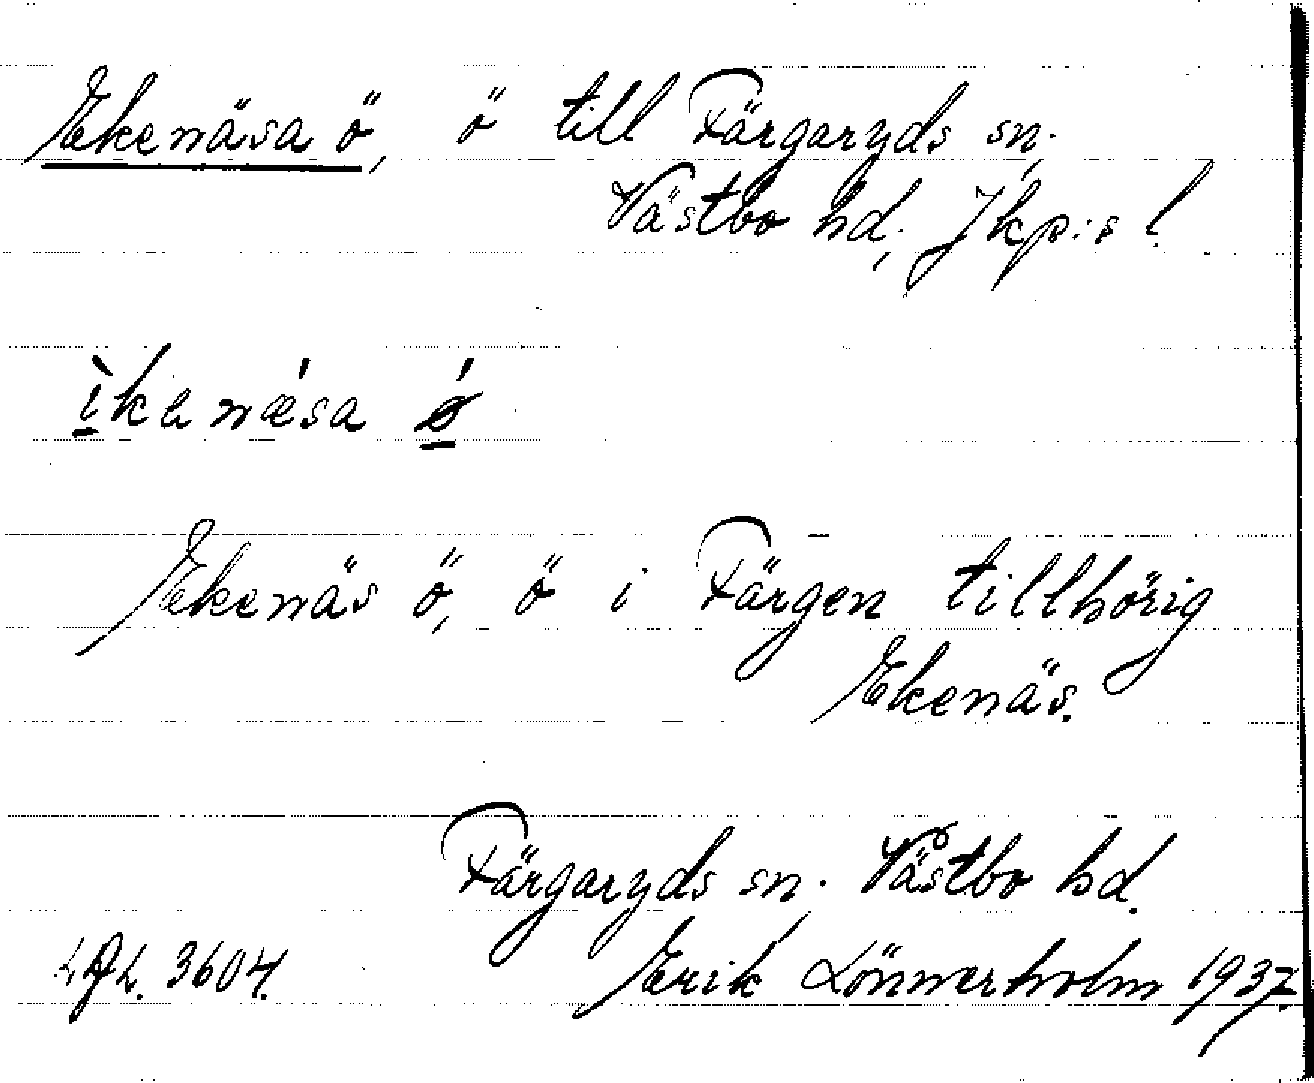 Ekenäsa ö, ö till Färgaryds sn.
Västbo hd, Jkp:s l.
ìkanǽsa ǿ
Ekenäs ö, ö i Färgen tillhörig
Ekenäs.
Färgaryds sn. Västbo hd.
3604. Erik Lönnerholm 1937.